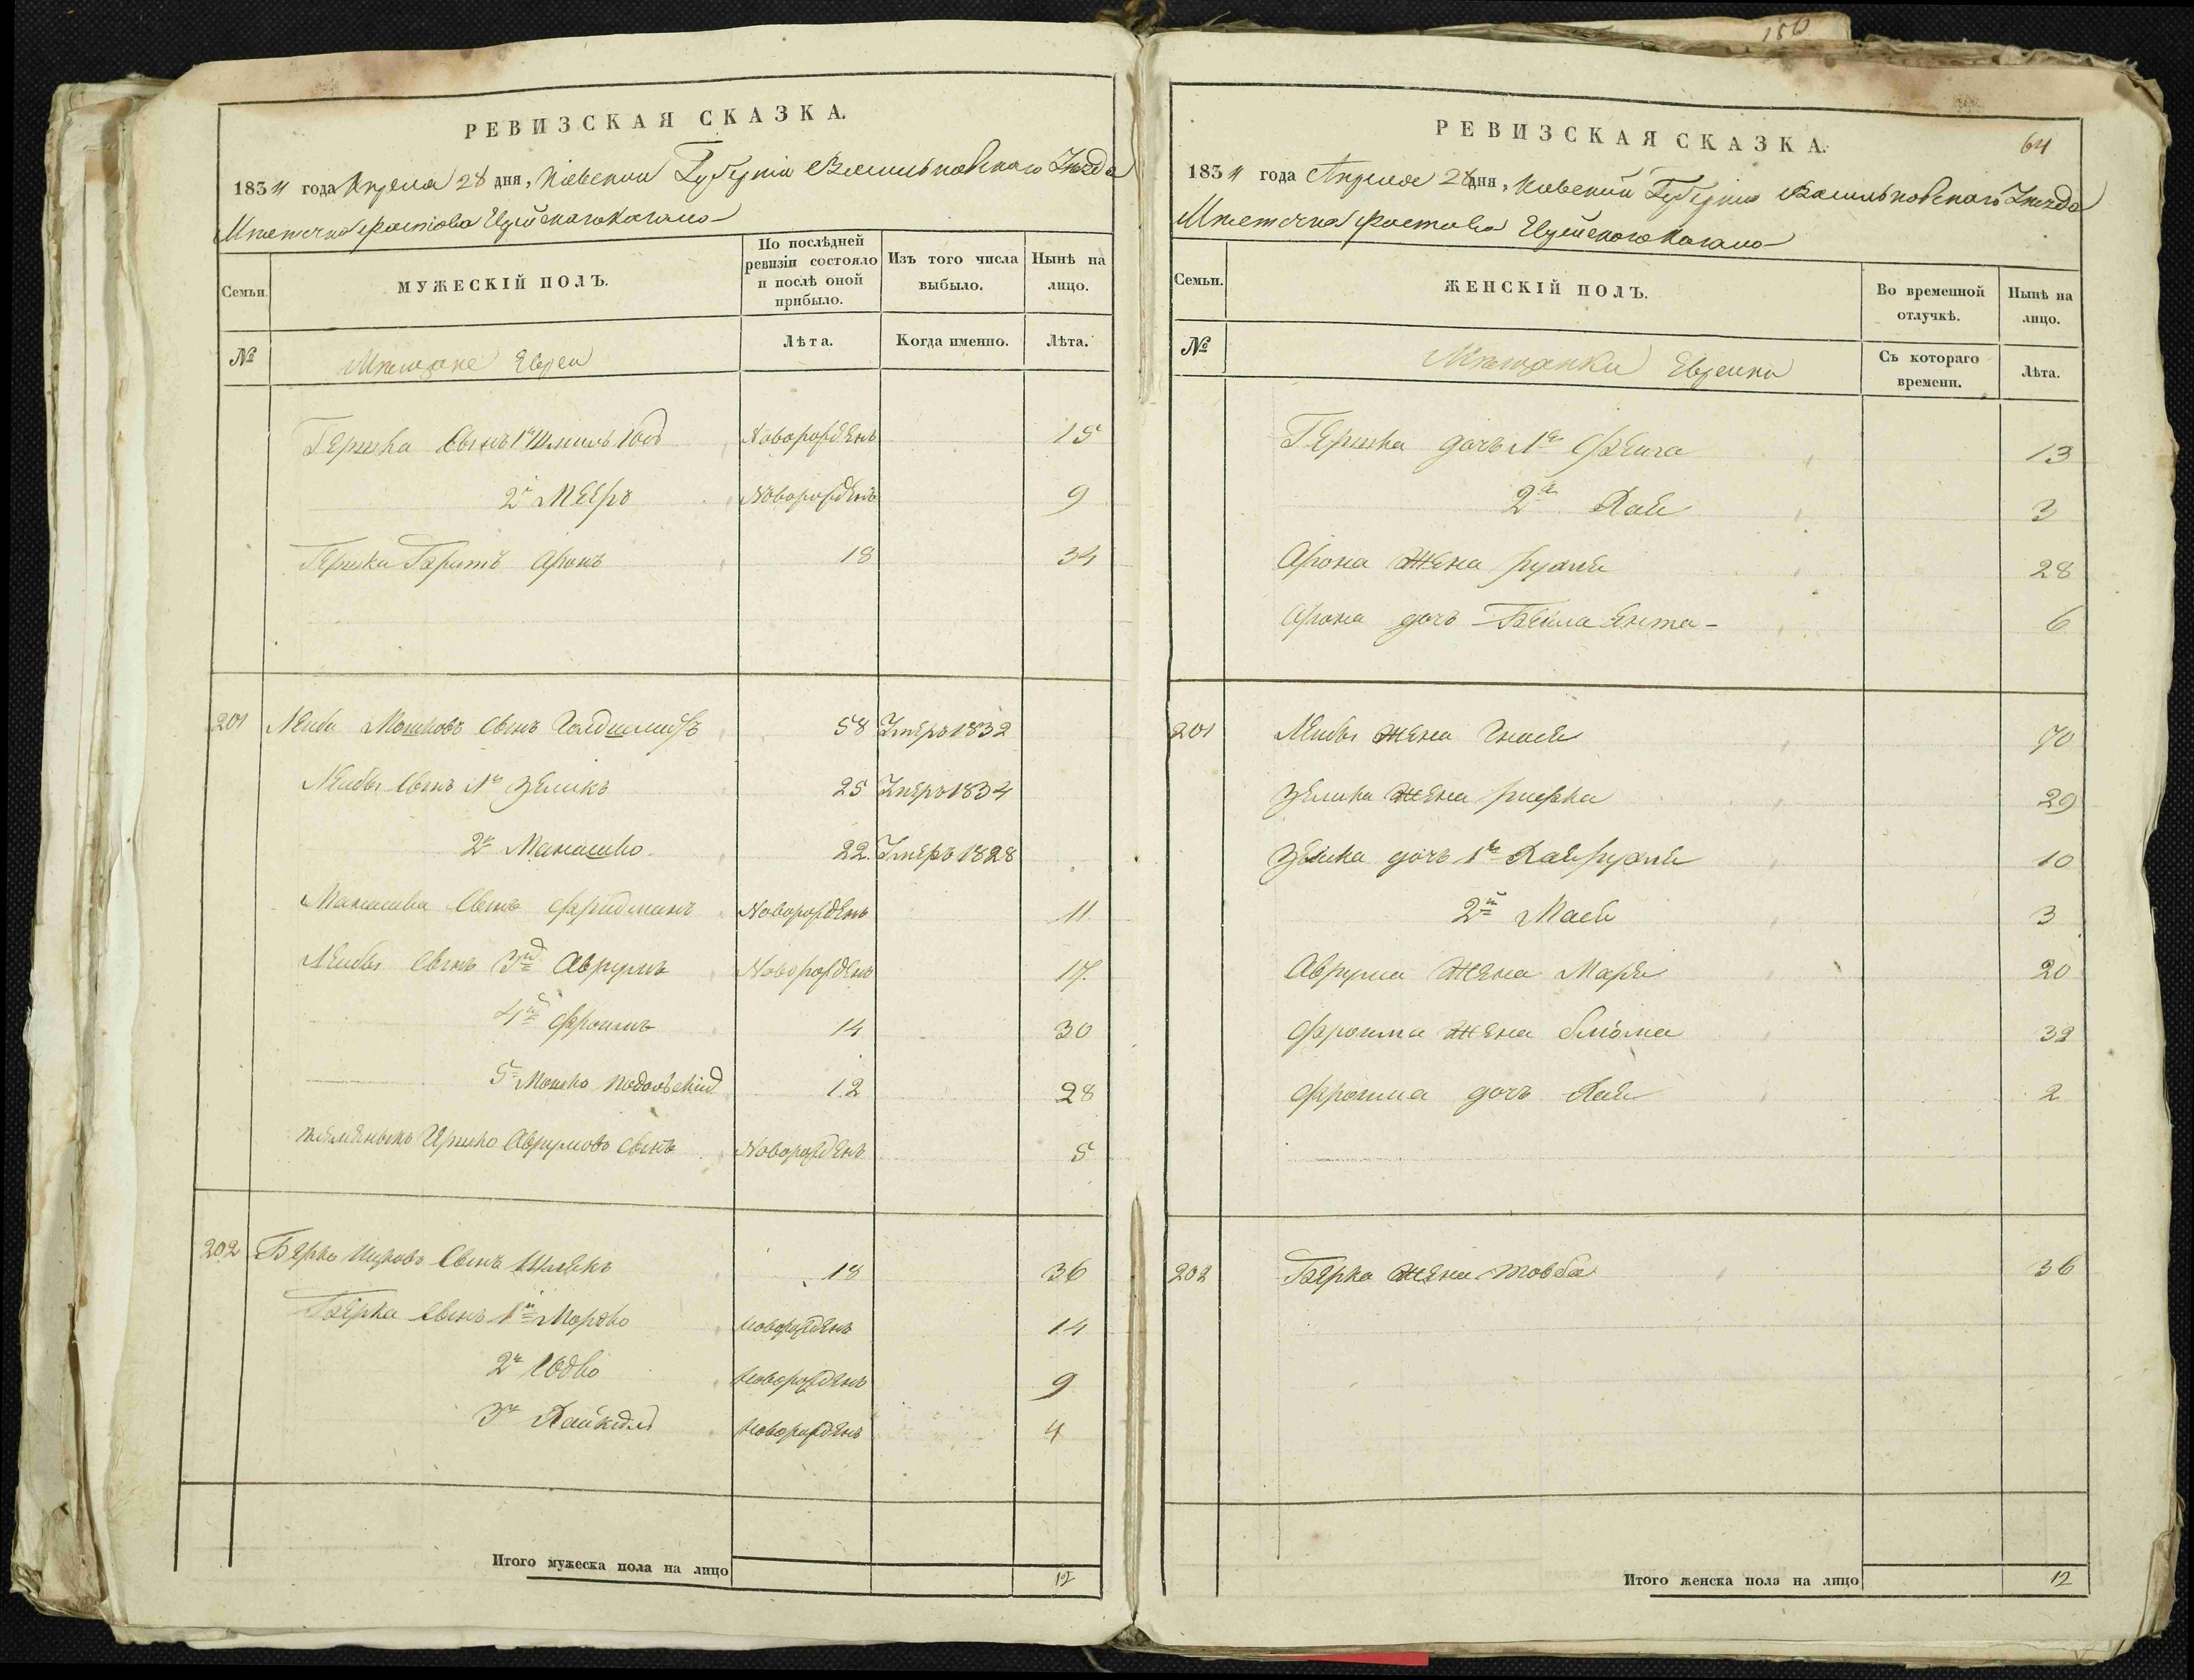 150
РЕВИЗСКАЯ СКАЗКА.
1834 года Апреля 28 дня, Киевской Губернии Васильковского Уезда
Местечка Фастова Еврейского Кагала
Семьи.
МУЖЕСКІЙ ПОЛЪ.
По послѣдней ревизіи состояло и послѣ оной прибыло.
Изъ того числа выбыло.
Нынѣ на лицо.
№
Мещане Евреи
Лѣта.
Когда именно.
Лѣта.
Гершка Сынъ 1й Шмиль Новорожденъ 15
2й Мееръ Новорожденъ 9
Гершка Братъ Аронъ 18 34
201 Лейба Мошковъ Сынъ 58 Умеръ 1832
Лейбы Сынъ 1й Зеликъ 25 Умеръ 1834
2й Манашко 22. Умеръ 1828
Манашка Сынъ Фридманъ Новорожденъ 11
Лейбы Сынъ 3й Аврумъ Новорожденъ 17.
4й Фроимъ 14 30
5й Мошко 12 28
Племеникъ Иршко Аврумовъ Сынъ Новорожденъ 5
202 Берко Ицковъ Сынъ 18 36
Берка Сынъ 1й Мортко Новорожденъ 14
2й Юдко Новорожденъ 9
3й Новорожденъ 4
Итого мужеска пола на лицо 12
РЕВИЗСКАЯ СКАЗКА.
64
1834 года Апреля 28 дня, Киевской Губернии Васильковского Уезда
Местечка Фастова Еврейского Кагала
Семьи.
ЖЕНСКІЙ ПОЛЪ.
Во временной отлучкѣ.
Нынѣ на лицо.
№
Мещанки Еврейки
Съ котораго времени.
Лѣта.
Гершка дочь 1я Фейга 13
2я Хая 3
Арона Жена Рухля 28
Арона дочь Бейла Ента 6
201 Лейбы Жена 70
Зелика Жена Рифка 29
Зелика дочь 1я Хая Рухля 10
2я 3
Аврума Жена Маря 20
Фроима Жена 32
Фроима дочь Хая 2
202 Берка Жена Товба 36
Итого женска пола на лицо 12